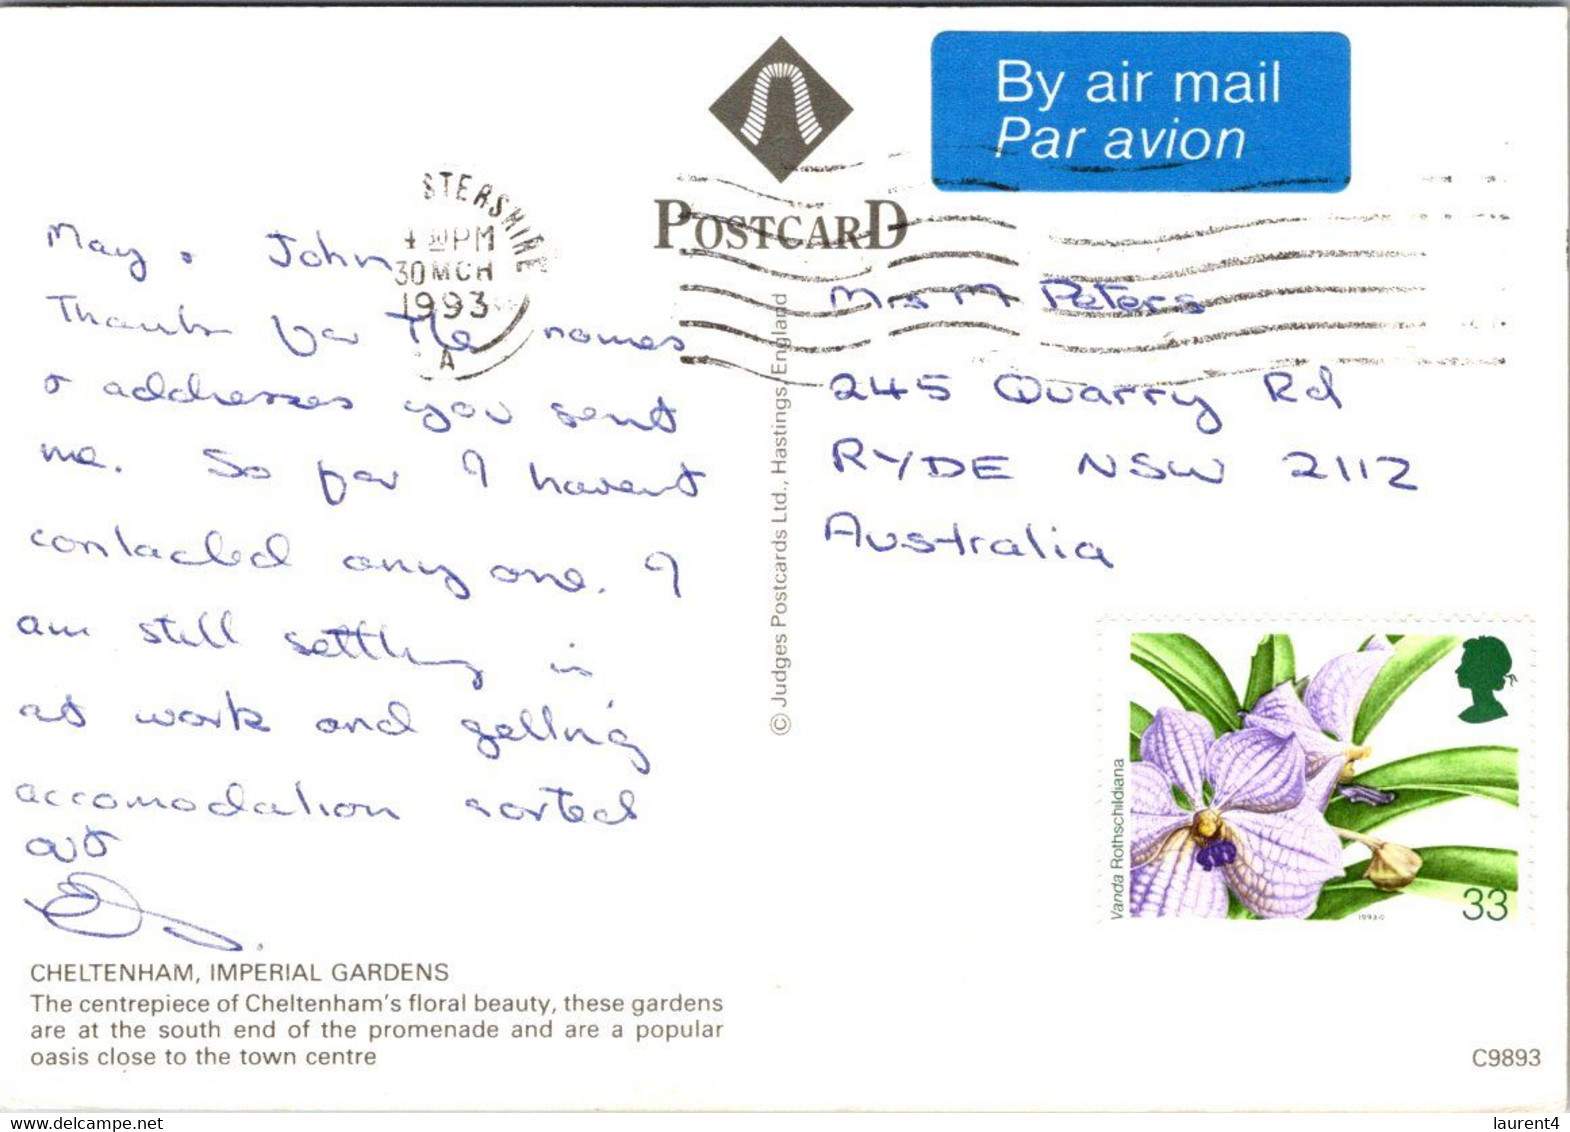 By air mail
Par avion
POSTCARD
STERSHIRE
4 30PM
30 MCH
1993
A
May & John
Thanks for the names
& addresses you sent
me. So far I havent
contacted any one. I
am still settling in
at work and getting
accomodation sorted
out
Mrs M Peters
245 Quarry Rd
RYDE NSW 2112
Australia
© Judges Postcards Ltd., Hastings, England
Vanda Rothschildiana
1993
33
CHELTENHAM, IMPERIAL GARDENS
The centrepiece of Cheltenham's floral beauty, these gardens
are at the south end of the promenade and are a popular
oasis close to the town centre
C9893
laurent4